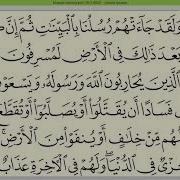 وَلَقَدْ جَآءَتْهُمْ رُسُلُنَا بِٱلْبَيِّنَٰتِ ثُمَّ إِنَّ
بَعْدَ ذَٰلِكَ فِى ٱلْأَرْضِ لَمُسْرِفُونَ
ٱلَّذِينَ يُحَارِبُونَ ٱللَّهَ وَرَسُولَهُۥ وَيَسْعَوْنَ
فَسَادًا أَن يُقَتَّلُوٓا۟ أَوْ يُصَلَّبُوٓا۟ أَوْ تُقَطَّعَ
هُم مِّنْ خِلَٰفٍ أَوْ يُنفَوْا۟ مِنَ ٱلْأَرْضِ ۚ
خِزْىٌ فِى ٱلدُّنْيَا ۖ وَلَهُمْ فِى ٱلْآخِرَةِ عَذَابٌ